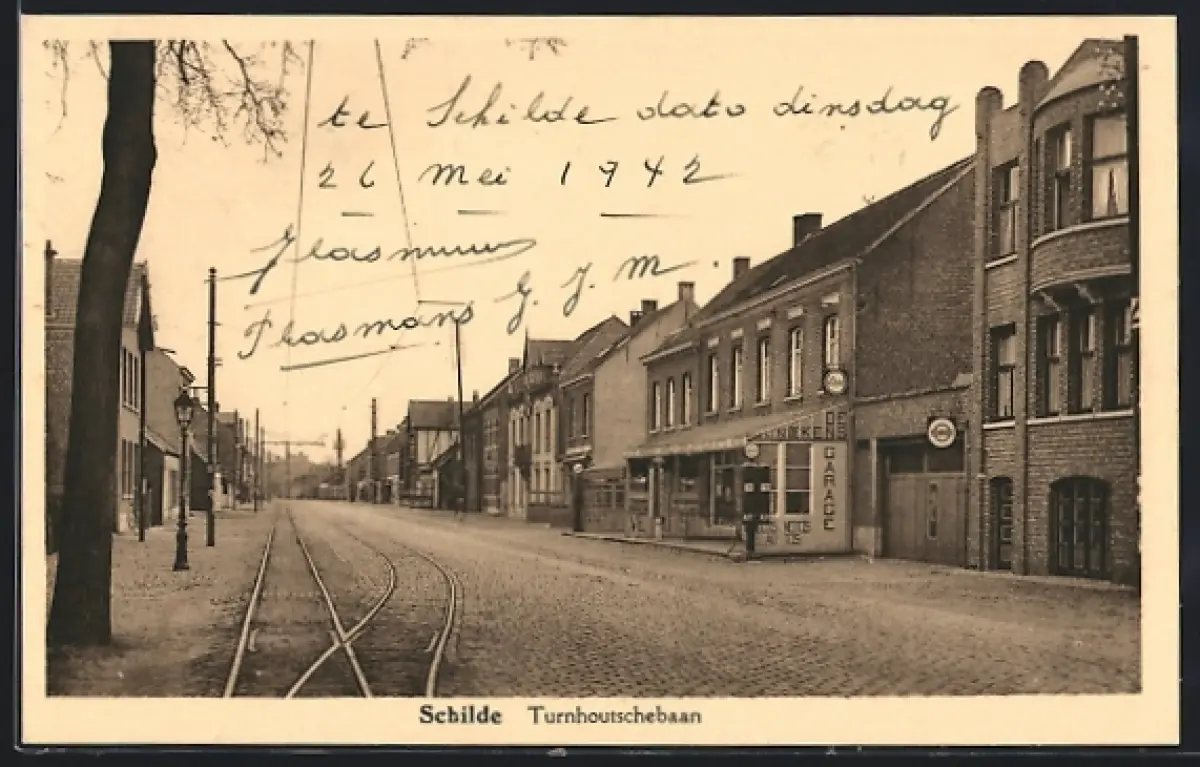 te Schilde dato dinsdag
26 Mei 1942
Flasmans G. J. M.
GARAGE
Schilde Turnhoutschebaan